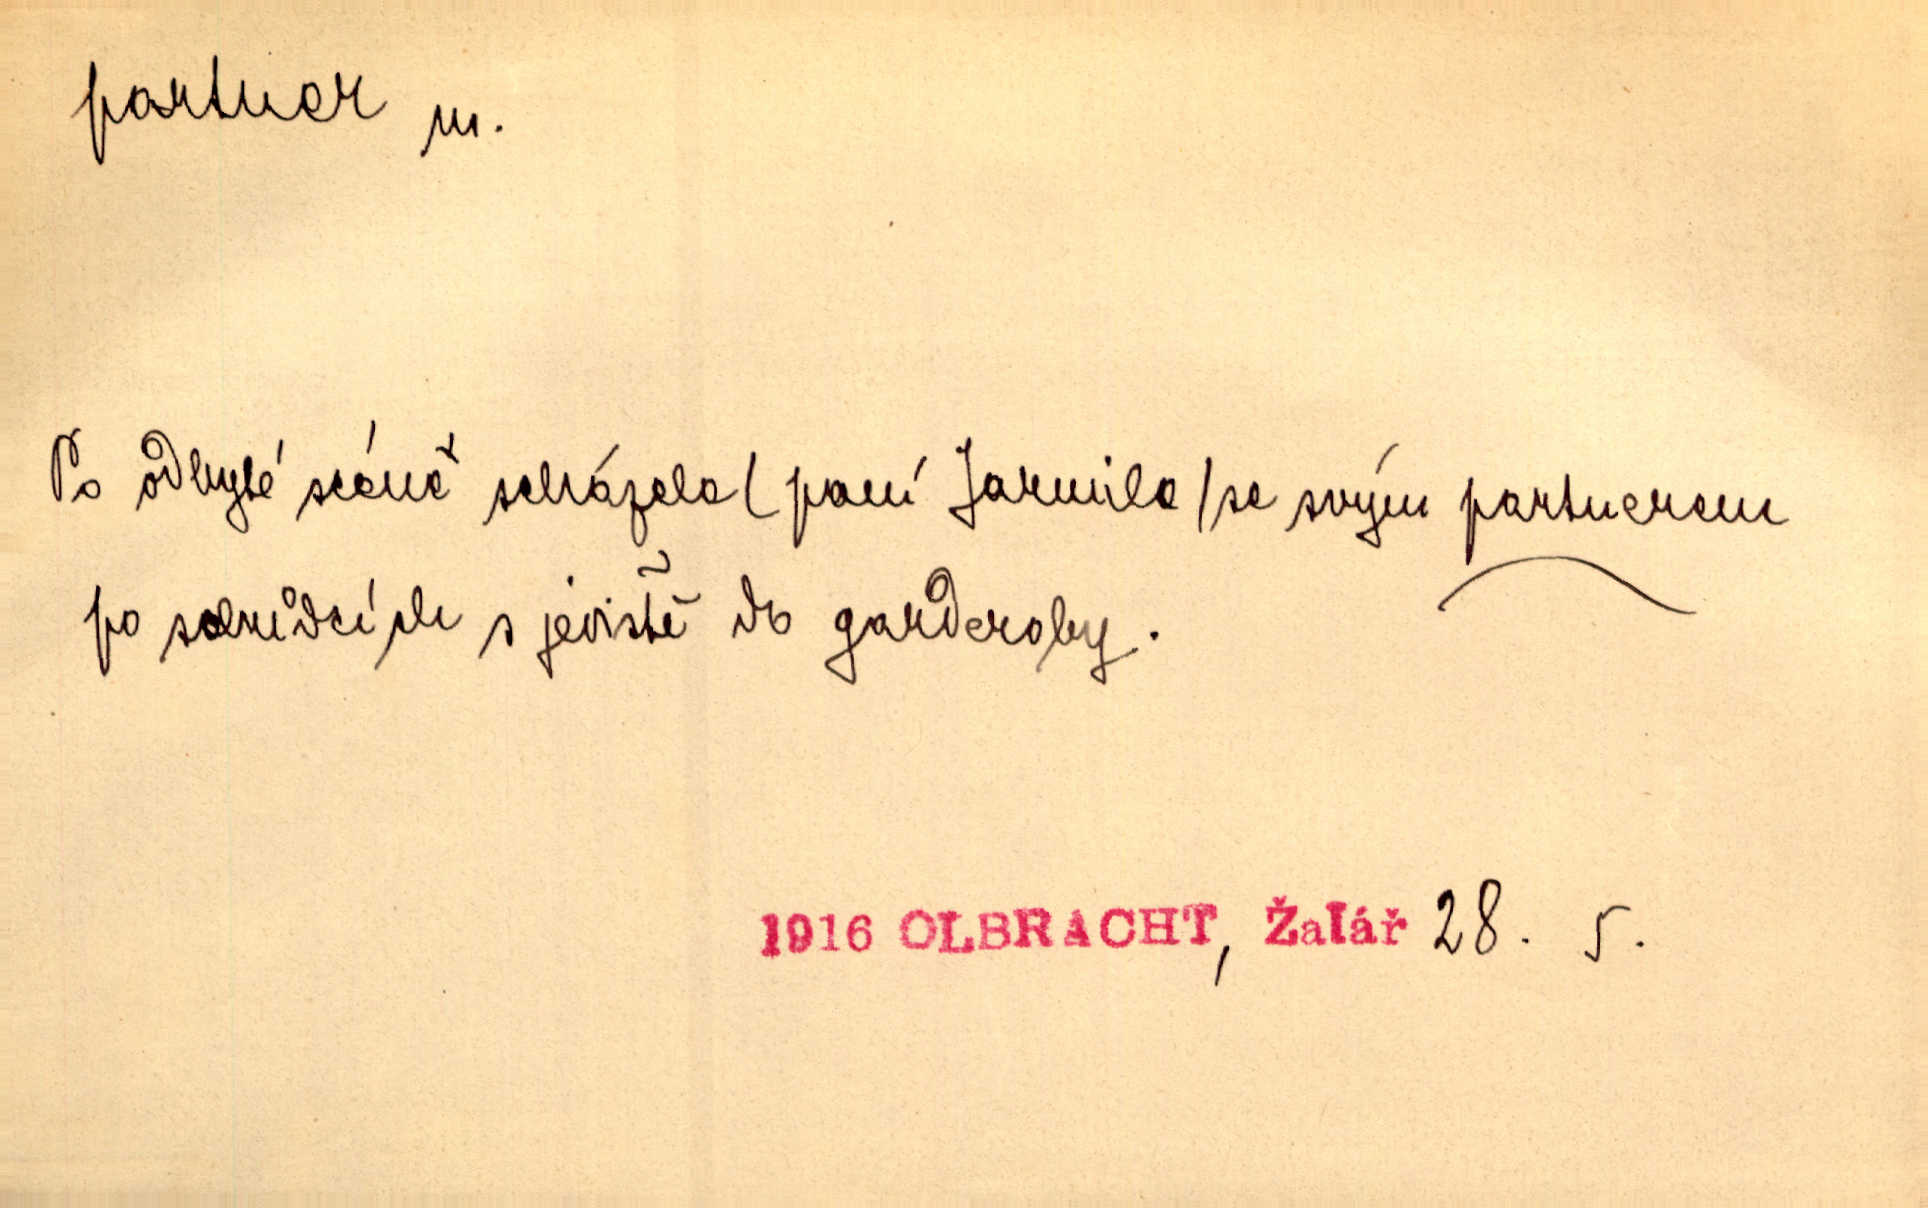 partner m.
Po odbyté scéně scházela (paní Jarmila) se svým partnerem
po schůdcích s jeviště do garderoby.
1916 OLBRACHT, Žalář 28. 5.